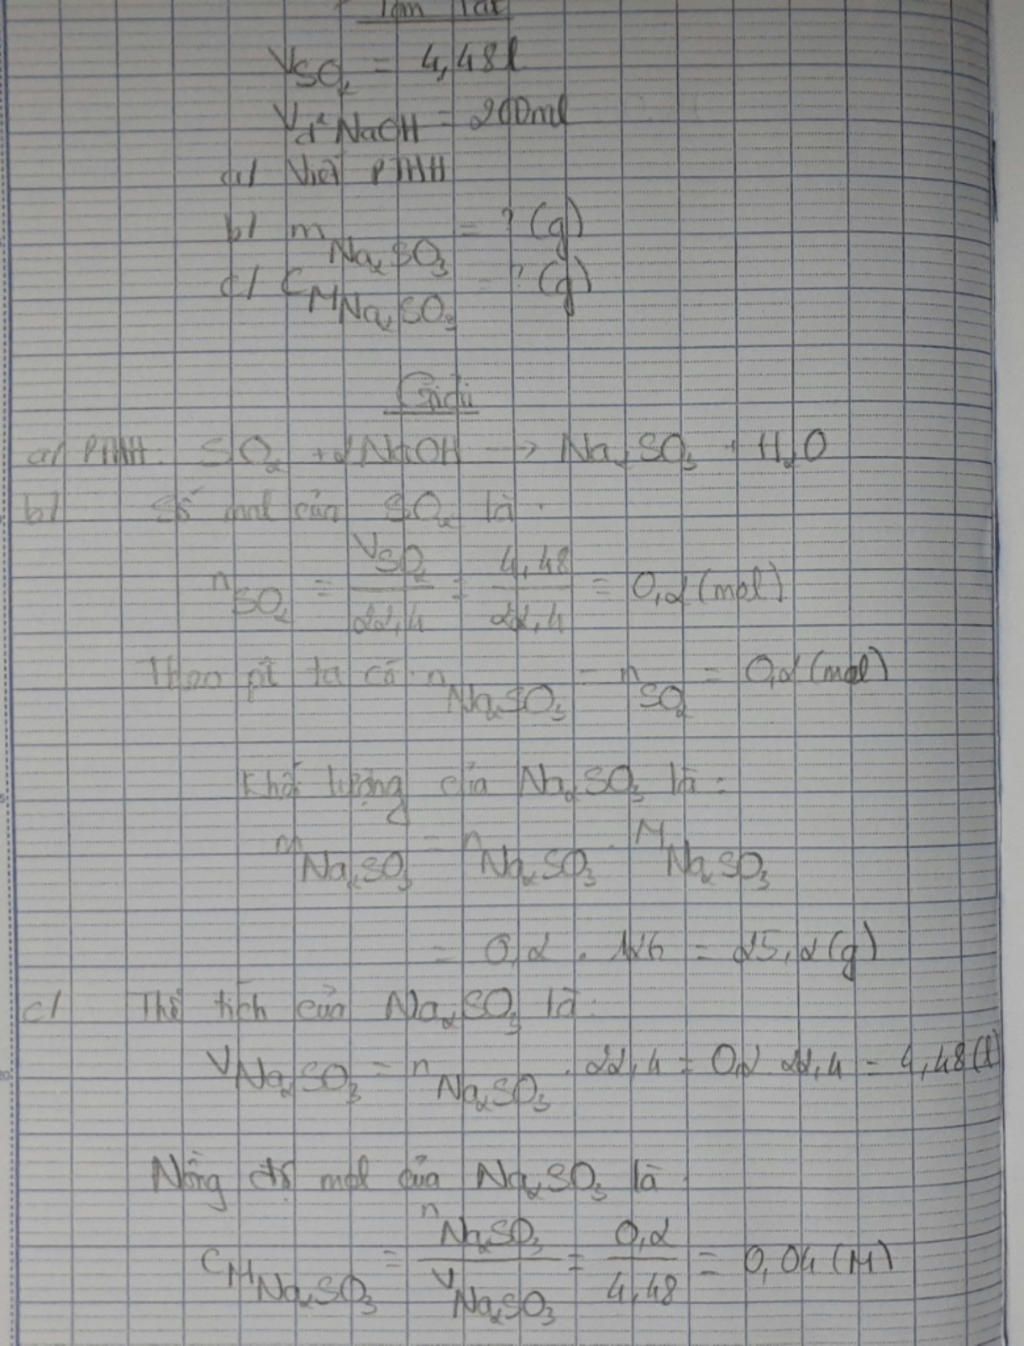 Tóm tắt
VSO2 = 4,48l
Vd² NaOH = 200ml
a/ Viết PTHH
b/ mNa2SO3 = ? (g)
c/ CMNa2SO3 = ? (g)
Giải
a/ PTHH: SO2 + 2NaOH → Na2SO3 + H2O
b/ Số mol của SO2 là:
nSO2 = VSO2/22,4 = 4,48/22,4 = 0,2 (mol)
Theo pt ta có: nNa2SO3 = nSO2 = 0,2 (mol)
Khối lượng của Na2SO3 là:
mNa2SO3 = nNa2SO3 . MNa2SO3
= 0,2 . 126 = 25,2 (g)
c/ Thể tích của Na2SO3 là:
VNa2SO3 = nNa2SO3 . 22,4 = 0,2 . 22,4 = 4,48 (l)
Nồng độ mol của Na2SO3 là
CMNa2SO3 = nNa2SO3/VNa2SO3 = 0,2/4,48 = 0,04 (M)